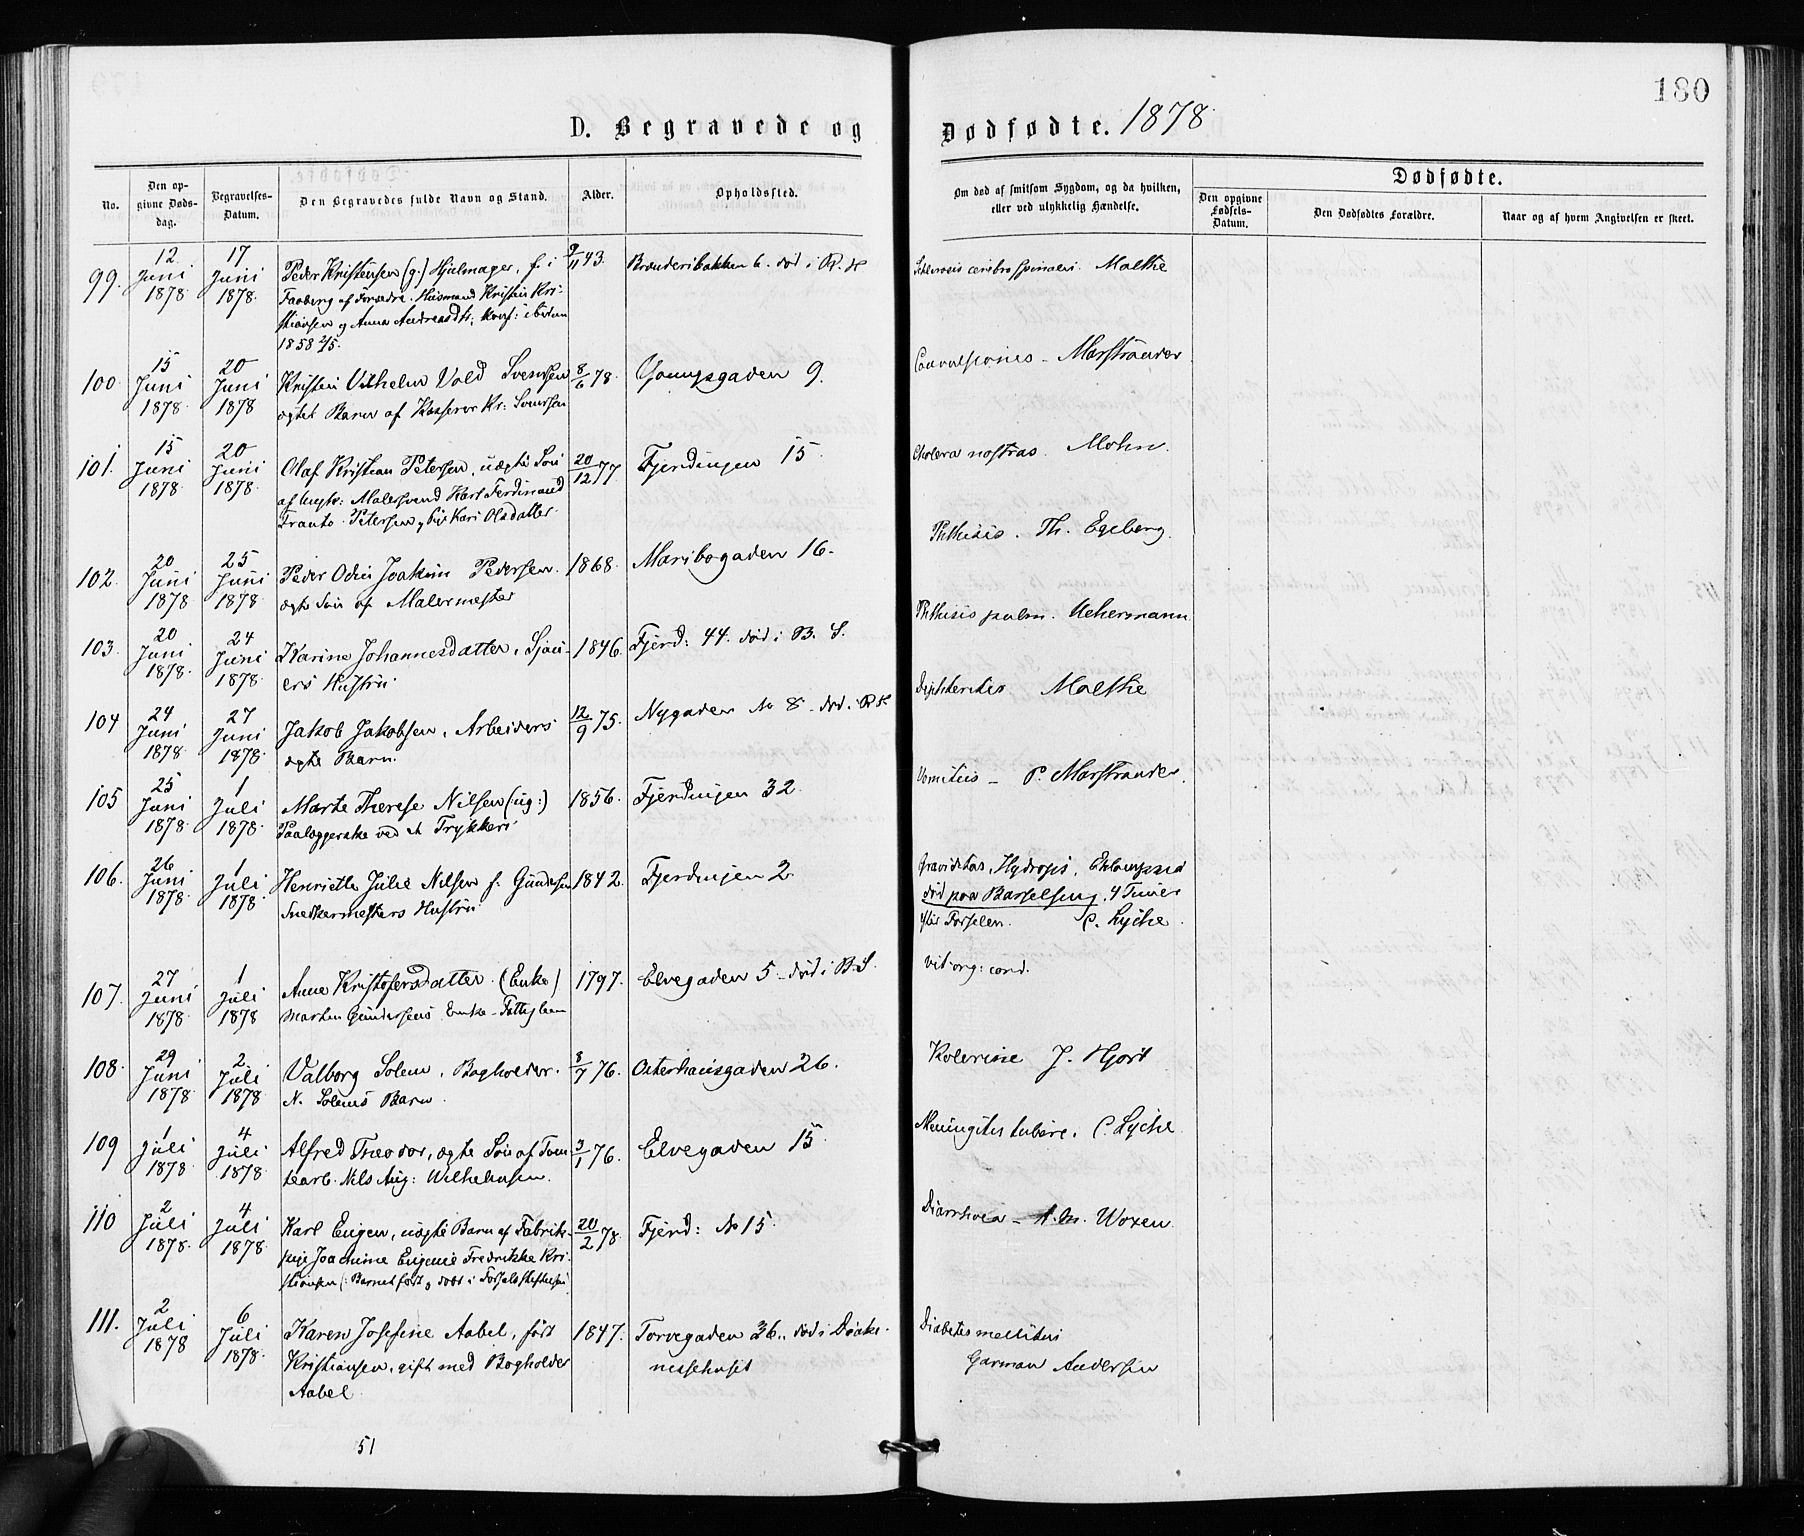 180
D. Begravede og Dødfødte. 1878.
No.
Den opgivne Dødsdag.
Begravelses-Datum.
Den Begravedes fulde Navn og Stand.
Alder.
Opholdssted.
Om død af smitsom Sygdom, og da hvilken, eller ved ulykkelig Hændelse.
Dødfødte.
Den opgivne Fødsels-Datum.
Den Dødfødtes Forældre.
Naar og af hvem Angivelsen er skeet.
99. 12 Juni 1878 17 Juni 1878. Peder Kristensen (g:) Hjulmager, f. i 9/11 43. Brænderibakken 6. død i R. H
Faaberg af Forældre: Husmand Kristen Kri-
stiansen og Anna Andreasdtr; konf:
1858 2/5.
Sclerosis cerebrospinalis. Malthe
100. 15 Juni 1878. 20 Juni 1878 Kristen Vilhelm Vold Svensen 8/6 78. Youngsgaden 9.
ægtet Barn af Kasserer Kr: Svensen
Convulsiones - Marstrander
101. 15 Juni 1878. 20 Juni 1878. Olaf Kristian Petersen, uægte Søn 20/12 77. Fjerdingen 15
af Ungkr: Malersvend Karl Ferdinand
Petersen og Pige Kari Olsdatter
Cholera nostras. Mohn.
102. 20 Juni 1878 25 Juni 1878 Peder Odin Joakim Pedersen. 1868. Maribogaden 16.
ægte Søn af Malermester
Phthisis. Th. Egeberg.
103. 20 Juni 1878. 24 Juni 1878. Karine Johannesdatter. Sjou- 1846. Fjerd: 44. død i B. S.
ers Hustru
Phthisis pulm. Uchermann
104 24 Juni 1878 27 Juni 1878. Jakob Jakobsen, Arbeiders 12/9 75. Nygaden No 8. død i R H
ægte Barn.
Diphtheritis Malthe
105 25 Juni 1878. 1 Juli 1878. Marte Therese Nilsen (ug:) 1856. Fjerdingen 32.
Paalæggerske ved et Trykkeri
Vomitus - P. Marstrander.
106. 26 Juni 1878. 1 Juli 1878. Henriette Julie Nilsen f. Gundersen 1842. Fjerdingen 2.
Snedkermesters Hustru
Graviditas, Hydrops, Eklampsia
død paa Barselseng. 4 Timer
efter Forløsn. C. Lyche
107. 27 Juni 1878. 1 Juli 1878 Anne Kristofersdatter. (Enke) 1797. Elvegaden 5. død i B. S.
Marten Gundersens Enke - Fattiglem
vit: org: cord.
108. 29 Juni 1878. 2 Juli 1878 Valborg Solem, Bogholder 8/7 76. Osterhausgaden 26.
N. Solems Barn.
Kolerine J. Hjort
109 1 Juli 1878. 4 Juli 1878. Alfred Theodor, ægte Søn af Tom- 3/1 76. Elvegaden 15.
tearb. Nils Aug: Wilhelmsen.
Meningitis tuberc. C. Lyche
110 2 Juli 1878. 4 Juli 1878. Karl Eugen, uægte Barn af Fabrik- 20/2 78. Fjerd: No 15.
pige Joachime Eugenie Fredrikke Kri-
stiansen (: Barnet født og døbt i Fødselsstiftelsen
Diarrhoea - A. M. Woxen.
111. 2 Juli 1878 6 Juli 1878. Karen Josefine Aabel, født 1847. Torvegaden 36., død i Diako-
Kristiansen, gift med Bogholder nissehuset
Aabel.
Diabetes mellitus
Garman Andersen
51